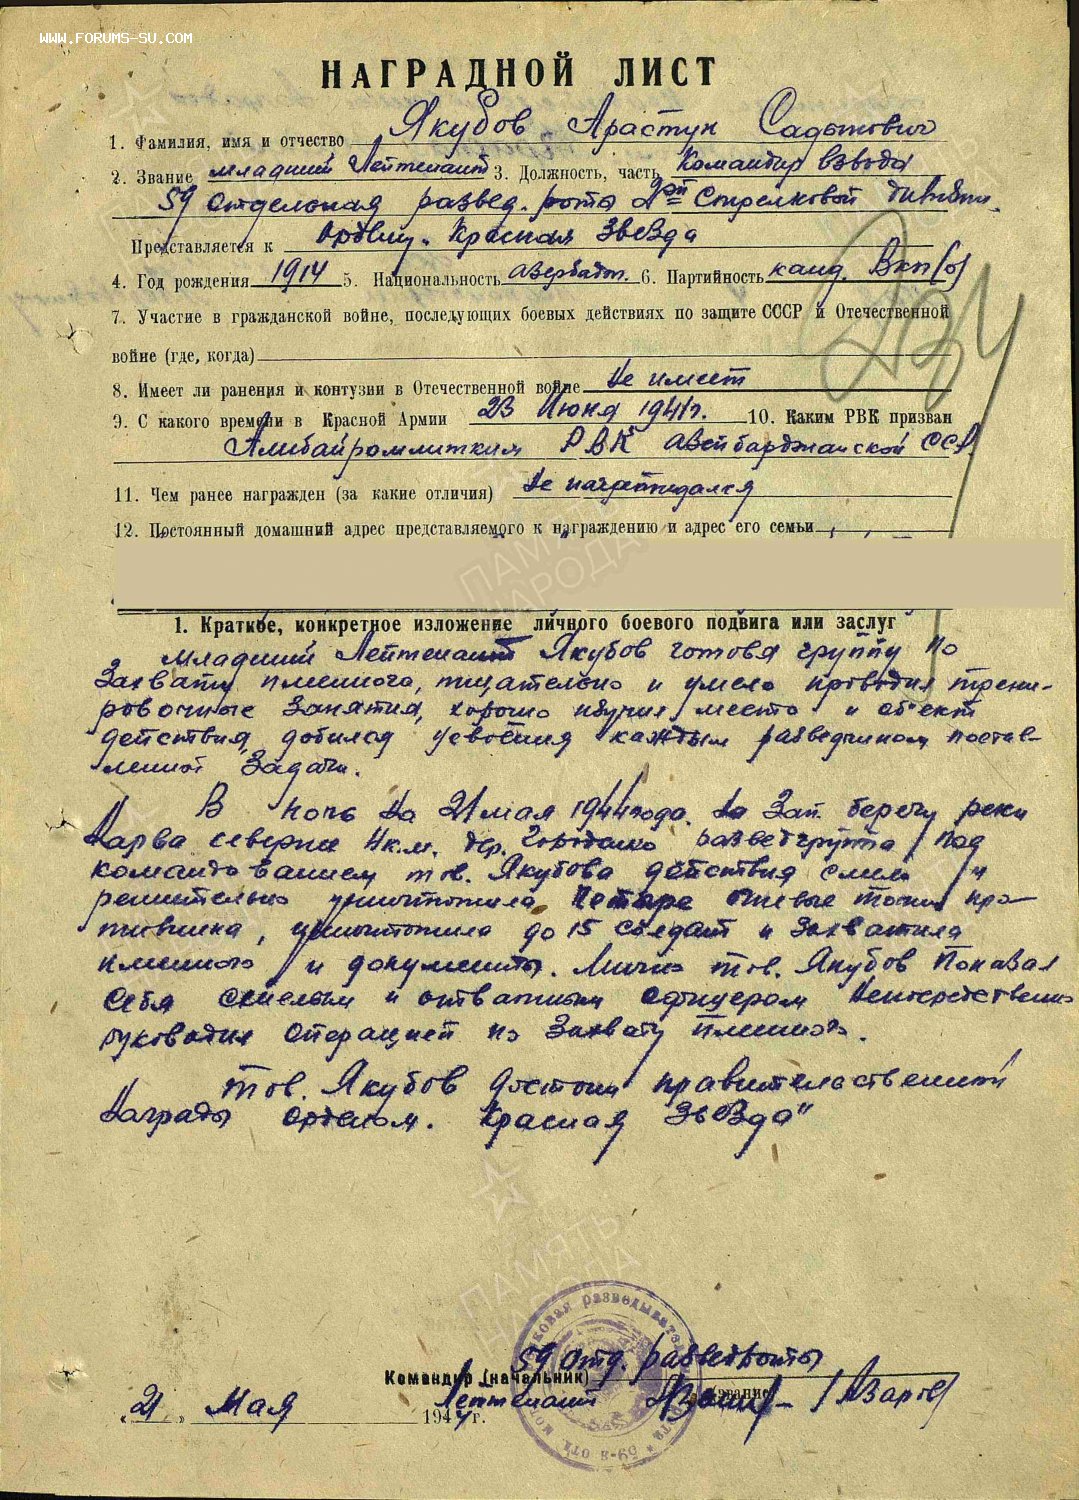 WWW.FORUMS-SU.COM
НАГРАДНОЙ ЛИСТ
1. Фамилия, имя и отчество Якубов Арастун Садыкович
2. Звание младший Лейтенант 3. Должность, часть Командир взвода
59 отдельная развед. рота 2ой Стрелковой дивизии.
Представляется к Ордену. Красная Звезда
4. Год рождения 1914 5. Национальность азербайдж. 6. Партийность канд. ВКП(б)
7. Участие в гражданской войне, последующих боевых действиях по защите СССР и Отечественной
войне (где, когда)
8. Имеет ли ранения и контузии в Отечественной войне Не имеет
9. С какого времени в Красной Армии 23 Июня 1941г. 10. Каким РВК призван
РВК ССР
11. Чем ранее награжден (за какие отличия) Не награждался
12. Постоянный домашний адрес представляемого к награждению и адрес его семьи
ПАМЯТЬ
НАРОДА
1. Краткое, конкретное изложение личного боевого подвига или заслуг
Младший Лейтенант Якубов готовя группу по
Захвату пленного, тщательно и умело проводил трени-
ровочные Занятия, хорошо изучил место и объект
действия, добился усвоения каждым разведчиком постав-
ленной Задачи.
В ночь на 21 мая 1944 года. на Зап. берегу реки
Нарва севернее 4 к.м. дер. разведгруппа под
командованием тов. Якубова действуя смело и
решительно уничтожила четыре огневые точки про-
тивника, уничтожила до 15 солдат и Захватила
пленного и документы. Лично тов. Якубов Показал
себя смелым и отважным офицером непосредственно
руководил операцией по Захвату Пленного.
тов. Якубов достоин правительственной
Награды орденом. Красная Звезда"
ПАМЯТЬ
НАРОДА
59 отд. разведроты
Командир (начальник)
Лейтенант (звание) /Азаров/
„21" Мая 1944 г.